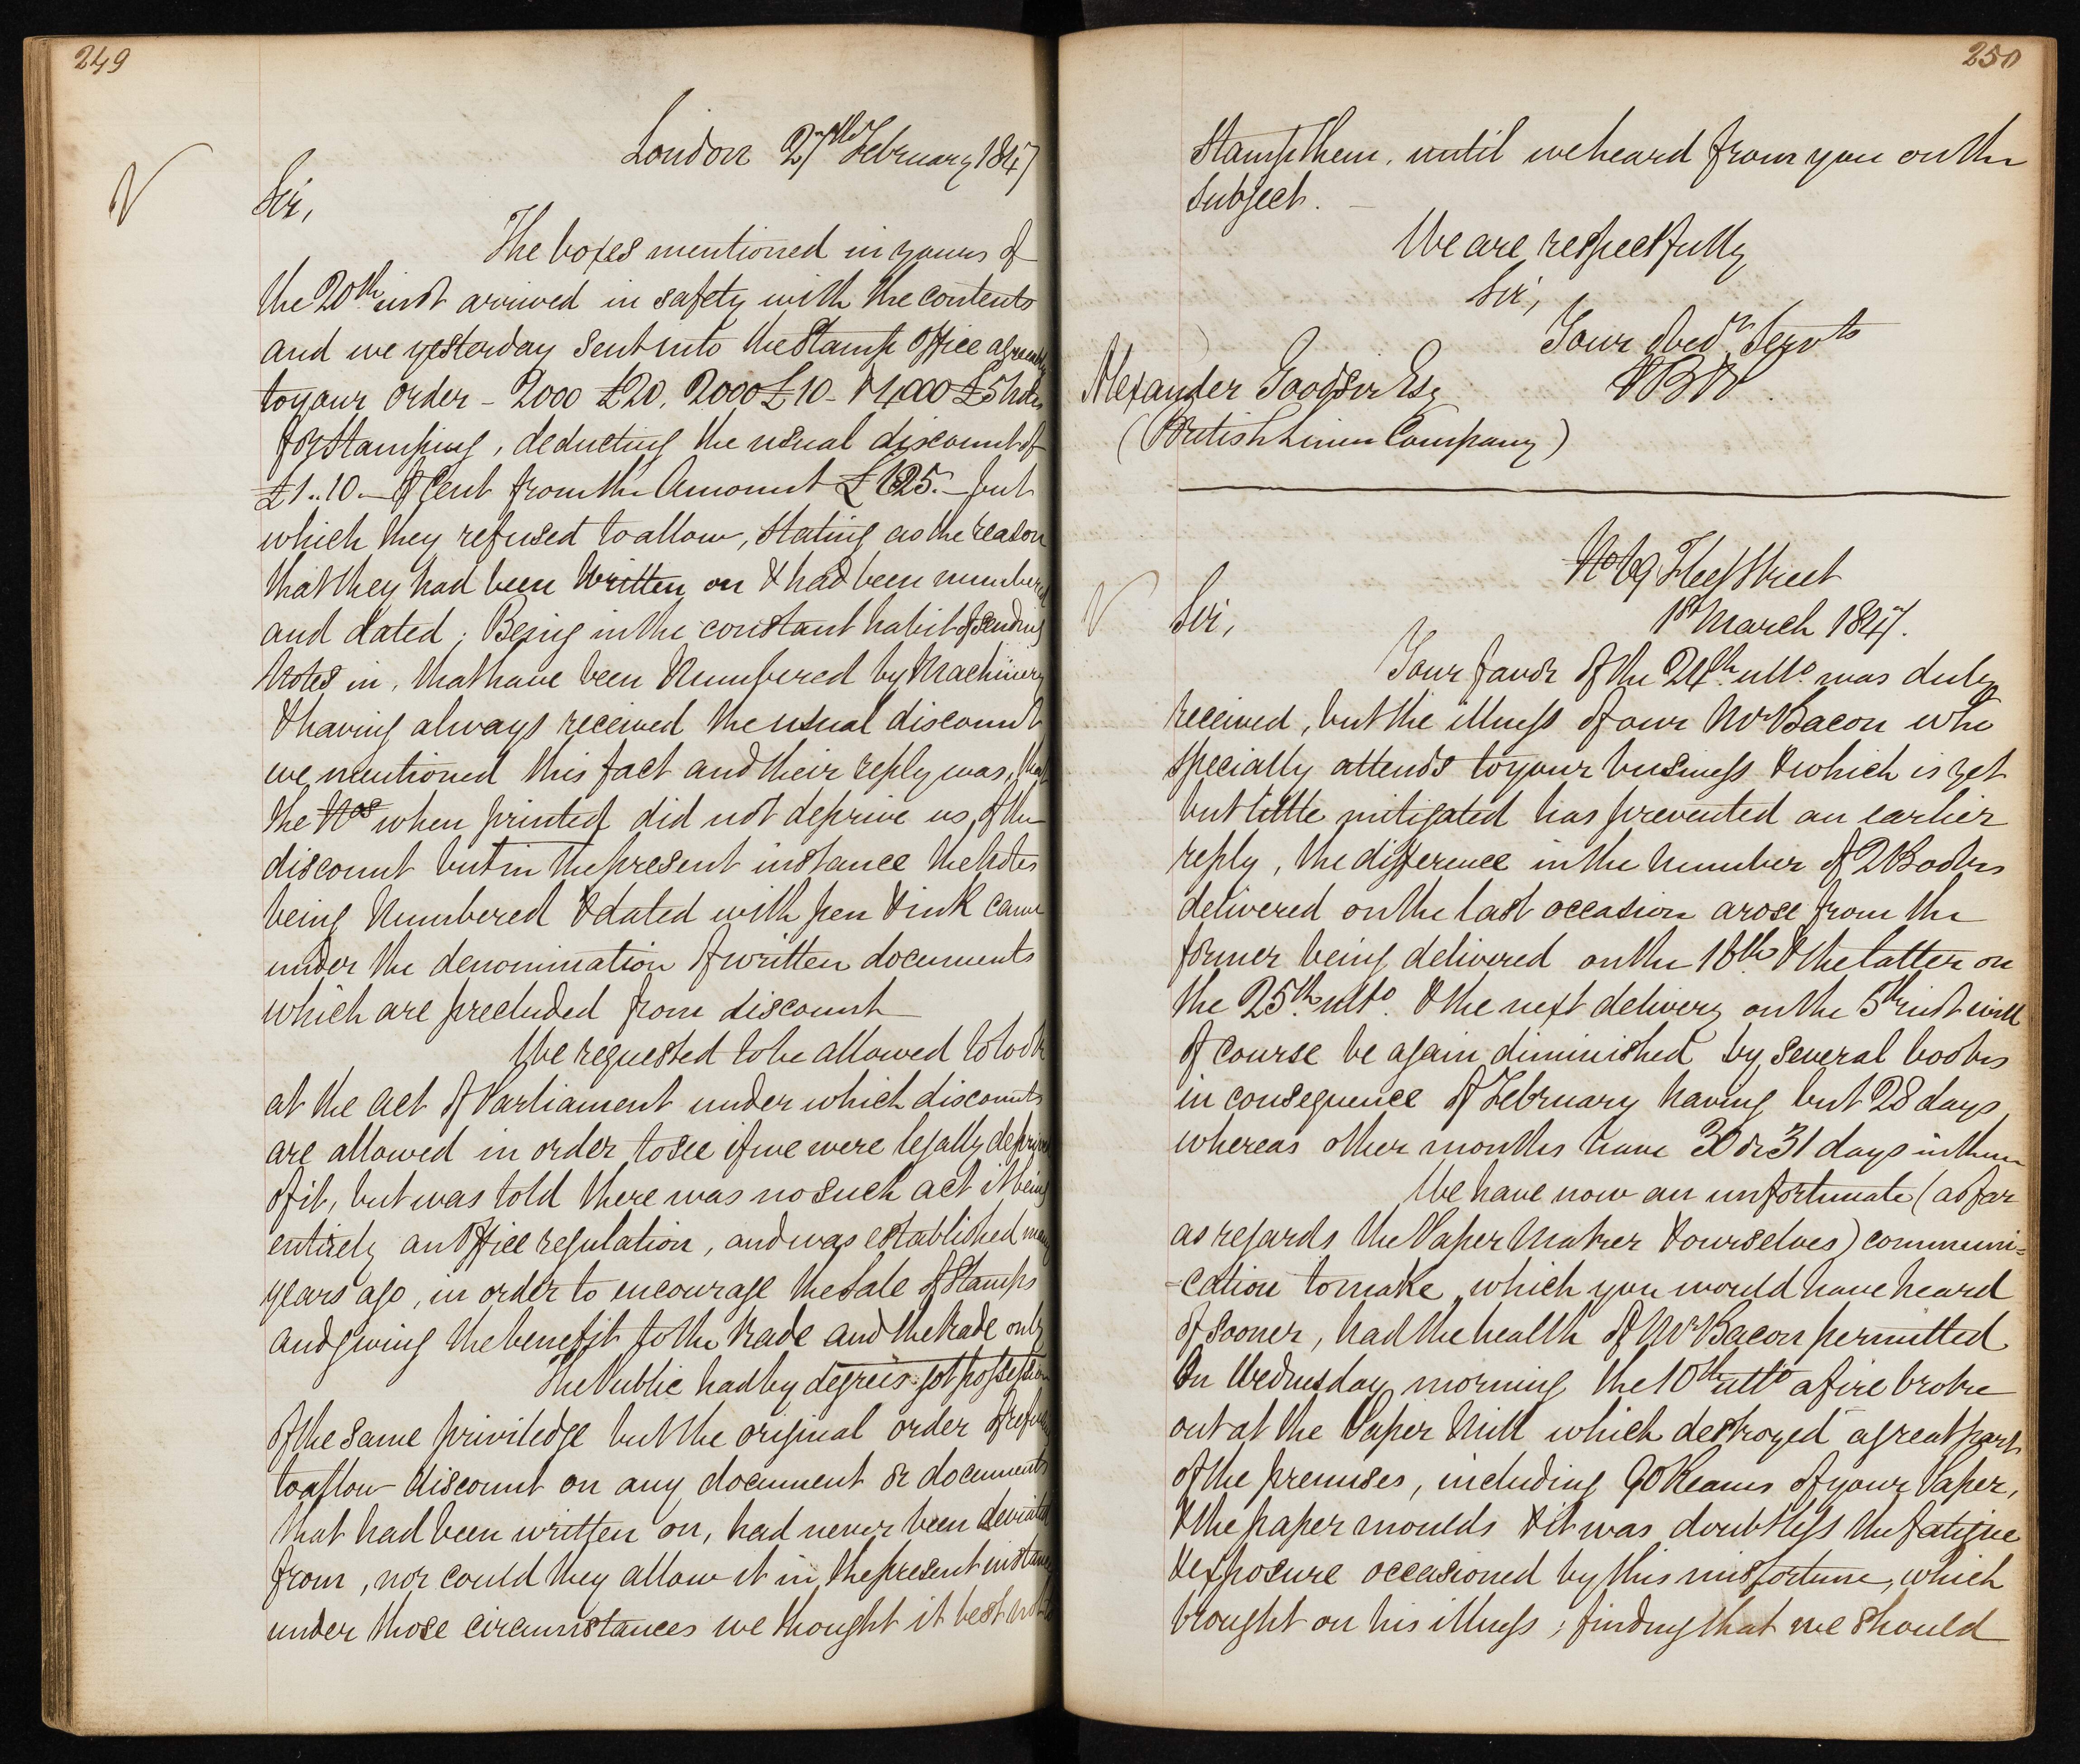 249
London 27th February 1847
Sir,
The boxes mentioned in yours of
the 20th inst arrived in safety with the contents
and we yesterday sent into the Stamp Office agreeably
to your order - 2000 £20, 2000 £10 - & 4000 £5 Notes
for Stamping, deducting the usual discount of
£1..10.- ⅌ Cent from the Amount £ - but
which they refused to allow, stating as the reason
that they had been Written on & had been numbered
and dated; Being in the constant habit of sending
Notes in, that have been Numbered by Machinery
& having always received the usual discount
we mentioned this fact and their reply was, that
the Nos when printed did not deprive us, of the
discount but in the present instance the Notes
being Numbered & dated with pen & ink came
under the denomination of written documents
which are precluded from discount
We requested to be allowed to look
at the Act of Parliament under which discounts
are allowed in order to see if we were legally deprived
of it, but was told there was no such act it being
entirely an Office regulation, and was established many
years ago, in order to encourage the Sale of Stamps
and giving the benefit to the trade and the trade only
The Public had by degrees got possession
of the same priviledge but the original order of
to allow discount on any document or documents
that had been written on, had never been deviated
from, nor could they allow it in the present instance
under those circumstances we thought it best not to
250
Stamp them, until we heard from you on the
subject. -
We are respectfully
Sir,
Your Obedt Servts
PB&P
Alexander Goodsir Esq
(British Linen Company)
No 69 Fleet Street
1st March 1847.
Sir,
Your favor of the 24th ulto was duly
received, but the illness of our Mr Bacon who
specially attends to your business & which is yet
but little mitigated has prevented an earlier
reply, the difference in the number of 2 Books
delivered on the last occasion arose from the
former being delivered on the 18th & the latter on
the 25th ulto. & the next delivery on the 5th inst will
of course be again diminished by several books
in consequence of February having but 28 days,
whereas other months have 30 or 31 days in them
We have now an unfortunate (as far
as regards the Paper Maker & ourselves) communi=
-cation to make, which you would have heard
of sooner, had the health of Mr Bacon permitted
On Wednesday morning the 10th ulto a fire broke
out at the Paper Mill which destroyed a great part
of the premises, including 90 Reams of your Paper,
& the paper moulds & it was doubtless the fatigue
& exposure occasioned by this misfortune, which
brought on his illness; finding that we should